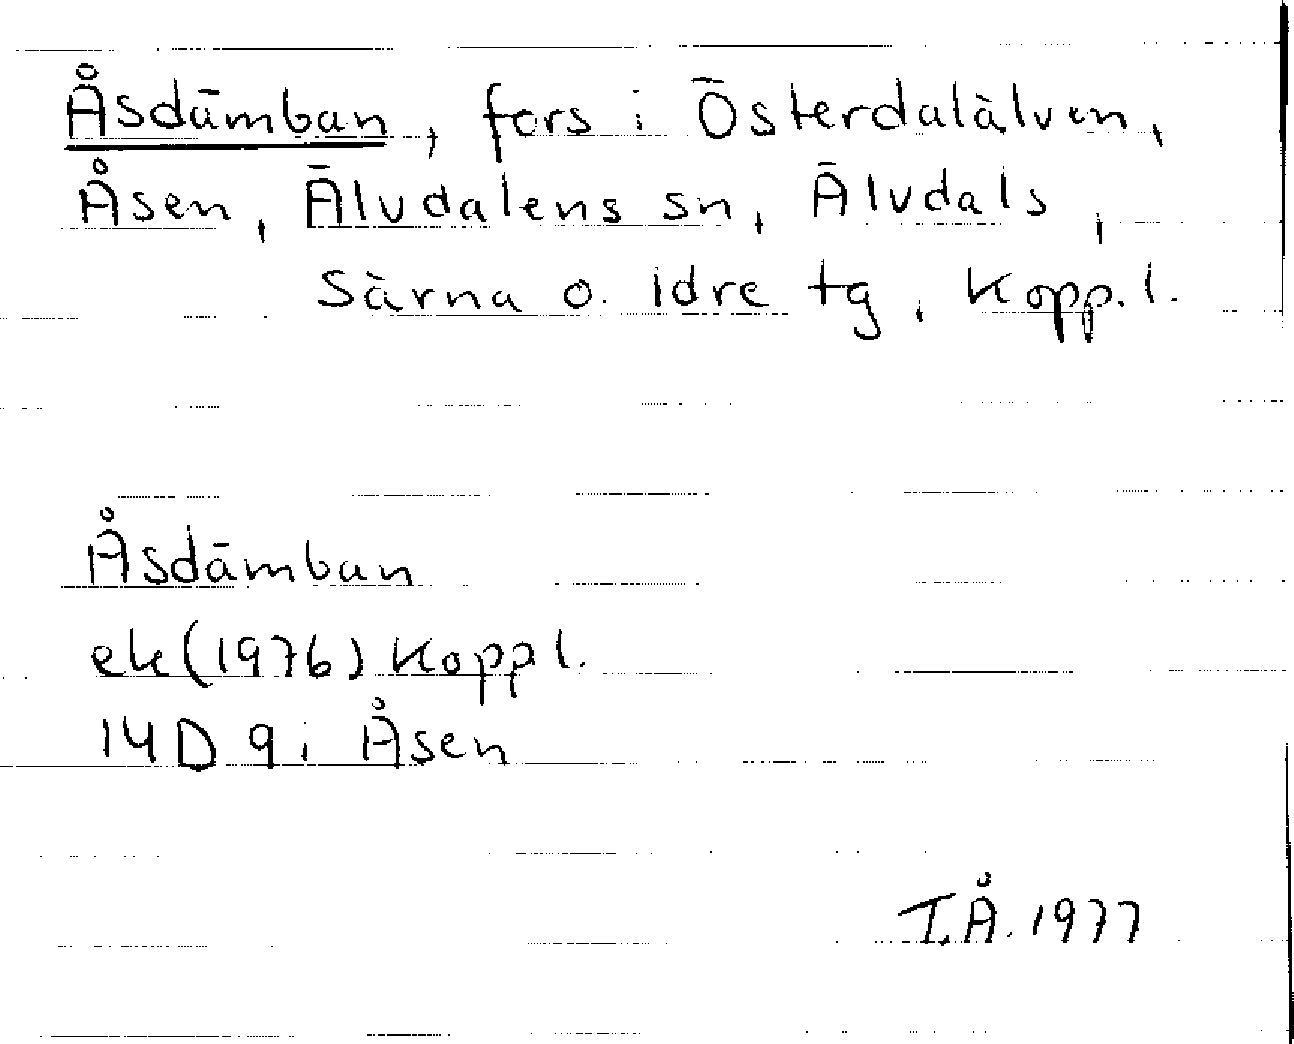 Åsdämban, fors i Österdalälven,
Åsen, Älvdalens sn, Älvdals,
Särna o. Idre tg, Kopp. l.
Åsdämban
ek (1976) Kopp l.
14 D 9 i Åsen
I.Å. 1977